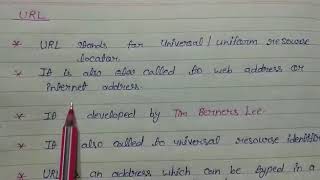 URL
* URL stands for Universal / uniform resource
locator.
* It is also also called to web address or
internet address.
* It developed by Tim Berners Lee.
* It also called to universal resource identifie
* URL is an address which can be typed in a